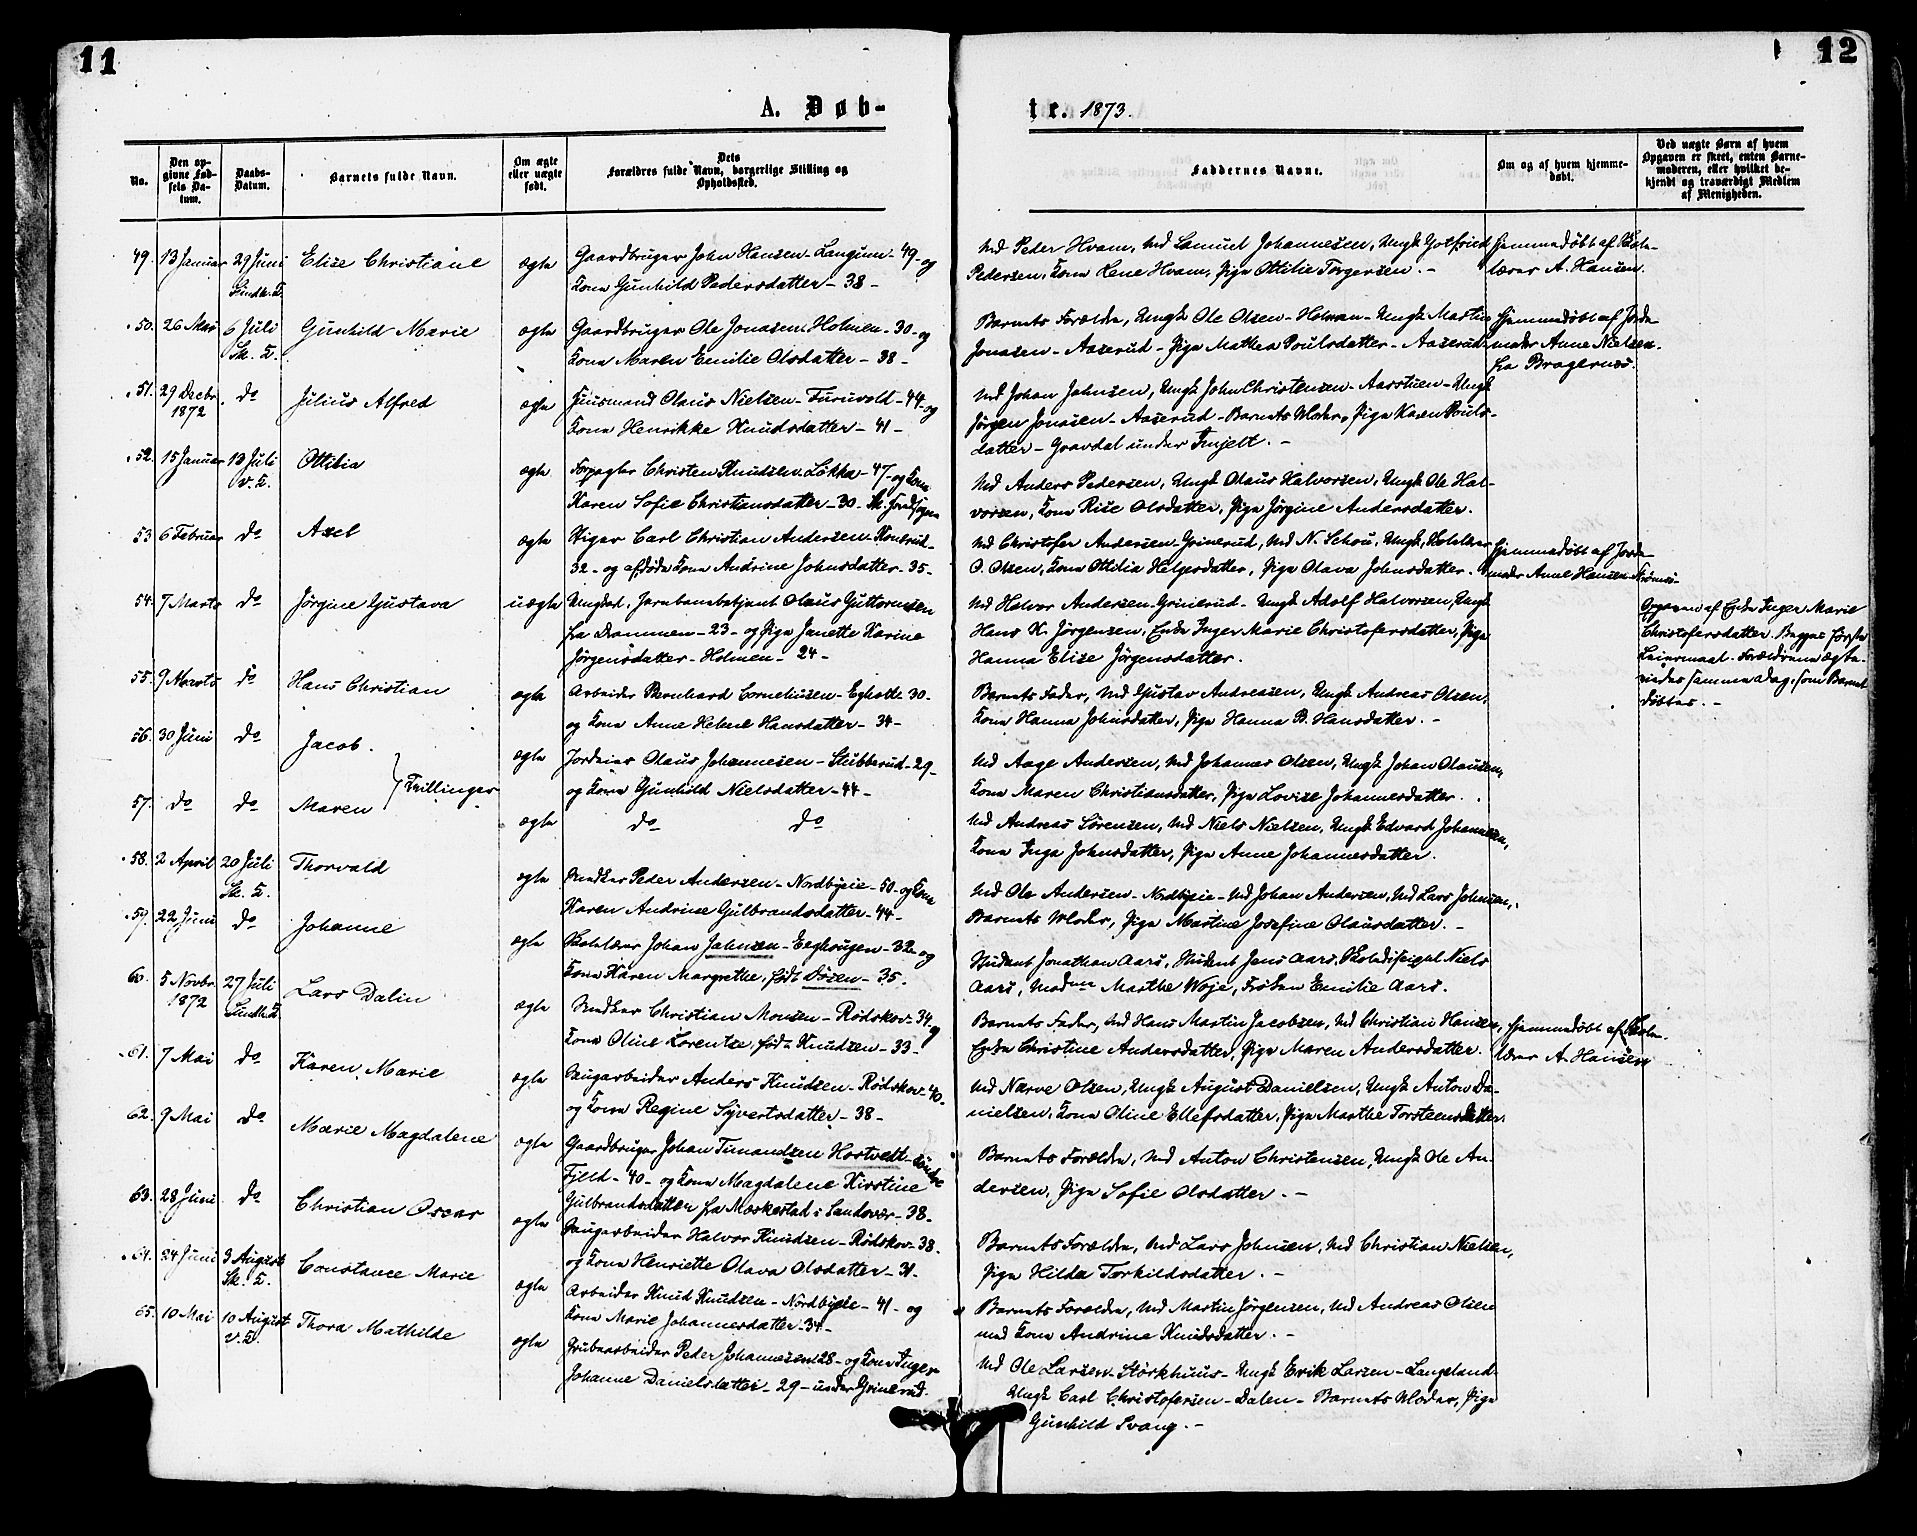 11
12
A. Døb-
te. 1873.
No.
Den op-
givne Fød-
sels Da-
tum.
Daabs-
Datum.
Barnets fulde Navn.
Om ægte
eller uægte
født.
Dets
Forældres fulde Navn, borgerlige Stilling og
Opholdssted.
Faddernes Navne.
Om og af hvem hjemme-
døbt.
Ved uægte Barn af hvem
Opgaven er skeet, enten Barne-
moderen, eller hvilket be-
kjendt og troværdigt Medlem
af Menigheden.
49. 13 Januar 29 Juni Elise Christiane ægte Gaardbruger John Hansen Langum - 49 - og
Kone Gunhild Pedersdatter - 38 -
Peder Hvam, Samuel Johannesen, Ungk Gotfried
Pedersen, Kone Lene Hvam, Pige Ottilie Torgersen. -
Hjemmedøbt af Skole-
lærer A. Hansen.
50. 26 Mai 6 Juli Gunhild Marie ægte Gaardbruger Ole Jonasen Holmen - 30 - og
Sk. K. Kone Maren Emilie Olsdatter - 38 -
Barnets Forældre, Ungk Ole Olsen - Holman - Ungk Martin
Jonasen - Aaserud - Pige Mathea Poulsdatter - Aaserud
Hjemmedøbt af Jorde-
moder Anne Nielsen
fra Bragernes.
51. 29 Decbr. do Julius Alfred ægte Huusmand Olaus Nielsen - Furuvold - 44 - og
1872 Kone Henrikke Knudsdatter - 41 -
Johan Jahnsen, Ungk John Christensen - Aasstuen - Ungk
Jørgen Jonasen - Aaserud - Barnets Moder, Pige Karen Pouls-
datter - Gravdal under
52. 15 Januar 13 Juli Ottilia ægte Forpagter Christen Knudsen Løkka - 47 - og Kone
Karen Sofie Christiansdatter - 30 -
Anders Pedersen, Ungk Olaus Halvorsen, Ungk Ole Hal-
vorsen, Kone Rise Olsdatter, Pige Jørgine Andersdatter.
53 6 Februar do Axel ægte Carl Christian Andersen
32 - og afdøde Kone Andrine Johnsdatter - 35 -
Christofer Andersen Grinerud, N. Schou, Ungk, Skolelærer
O. Olsen, Kone Ottilia Helgesdatter, Pige Olava Johnsdatter.
Hjemmedøbt af Jorde-
moder Anne Hansen
54. 7 Marts do Jørgine Gustava uægte Ungkarl, Jernbanebetjent Olaus Guttormsen
fra Drammen - 23 - og Pige Janette Karine
Jørgensdatter - Holmen - 24 -
Halvor Andersen Grinerud - Ungk Adolf Halvorsen, Ungk
Hans K. Jørgensen, Enke Inger Marie Christofersdatter, Pige
Hanna Elise Jørgensdatter.
Opgaven af Enke Inger Marie
Christofersdatter. Begges første
Leiermaal. Forældrene ægte-
viedes samme Dag, som Barnet
døbtes. -
55. 9 Marts do Hans Christian ægte Arbeider Bernhard Corneliusen - 30 -
og Kone Anne Helene Hansdatter - 34 -
Barnets Fader, Gustav Andreasen, Ungk Andreas Olsen,
Kone Hanna Johnsdatter, Pige Hanna B. Hansdatter. -
56. 30 Juni do Jacob. ægte Jordeier Olaus Johannesen - Stubberud - 29 -
og Kone Gunhild Nielsdatter - 44 -
Tvillinger
Aage Andersen, Johannes Olsen, Ungk Johan Olausen,
Kone Maren Christiansdatter, Pige Lovise Johannesdatter.
57. do do Maren ægte do do
Andreas Sørensen, Niels Nielsen, Ungk Edvard Johannesen,
Kone Inga Johnsdatter, Pige Anne Johannesdatter.
58. 2 April 20 Juli Thorvald ægte Snedker Peder Andersen - Nordbyeie - 50 - og Kone
Sk. K. Karen Andrine Gulbrandsdatter - 44 -
Ole Andersen - Nordbyeie - Johan Andersen, Lars Johnsen,
Barnets Moder, Pige Martine Josefine Olausdatter. -
59. 22 Juni do Johanne ægte Skolelærer Johan Jahnsen - Eeghougen - 32 - og
Kone Karen Margrethe, født Døsen - 35.
Student Jonathan Aars, Student Jens Aars, Skolediscipel Niels
Aars, Marthe Woje, Frøken Emilie Aars.
60. 5 Novbr. 27 Juli Lars Dalin ægte Snedker Christian Monsen - Rødskov - 34 og
1872 Kone Oline Lorentze, født Knudsen - 33 -
Barnets Fader, Hans Martin Jacobsen, Christian Hansen,
Enke Christine Andersdatter, Pige Maren Andersdatter.
Hjemmedøbt af Skole-
lærer A. Hansen
61. 7 Mai do Karen Marie ægte Saugarbeider Anders Knudsen - Rødskov - 40 -
og Kone Regine Syvertsdatter - 38 -
Narve Olsen, Ungk August Danielsen, Ungk Anton Da-
nielsen, Kone Oline Ellefsdatter, Pige Marthe Torsteensdatter.
62. 9 Mai do Marie Magdalene ægte Gaardbruger Johan Timandsen Hostvedt - søndre
Fjeld - 40 - og Kone Magdalene Kirstine
Gulbrandsdatter fra Mærkestad i Sandsvær - 38 -
Barnets Forældre, Anton Christensen, Ungk Ole An-
dersen, Pige Sofie Olsdatter. -
63. 28 Juni do Christian Oscar ægte Saugarbeider Halvor Knudsen - Rødskov - 38.
og Kone Henriette Olava Olsdatter - 31 -
Barnets Forældre, Lars Johnsen, Christian Nielsen,
Pige Hilda Torkildsdatter. -
64. 24 Juni 3 August Constance Marie ægte Arbeider Knud Knudsen - Nordbyeie - 41 - og
Sk. K. Kone Marie Johannesdatter - 34 -
Barnets Forældre, Martin Jørgensen, Andreas Olsen
med Kone Andrine Knudsdatter. -
65. 10 Mai 10 August Thora Mathilde ægte Grubearbeider Peder Johannesen 28 - og Kone Inger
Johanne Danielsdatter - 29 - under Grinerud.
Ole Larsen - Størkhuus - Ungk Erik Larsen - Langeland
Ungk Carl Christofersen - Dalen - Barnets Moder, Pige
Gunhild Svang. -